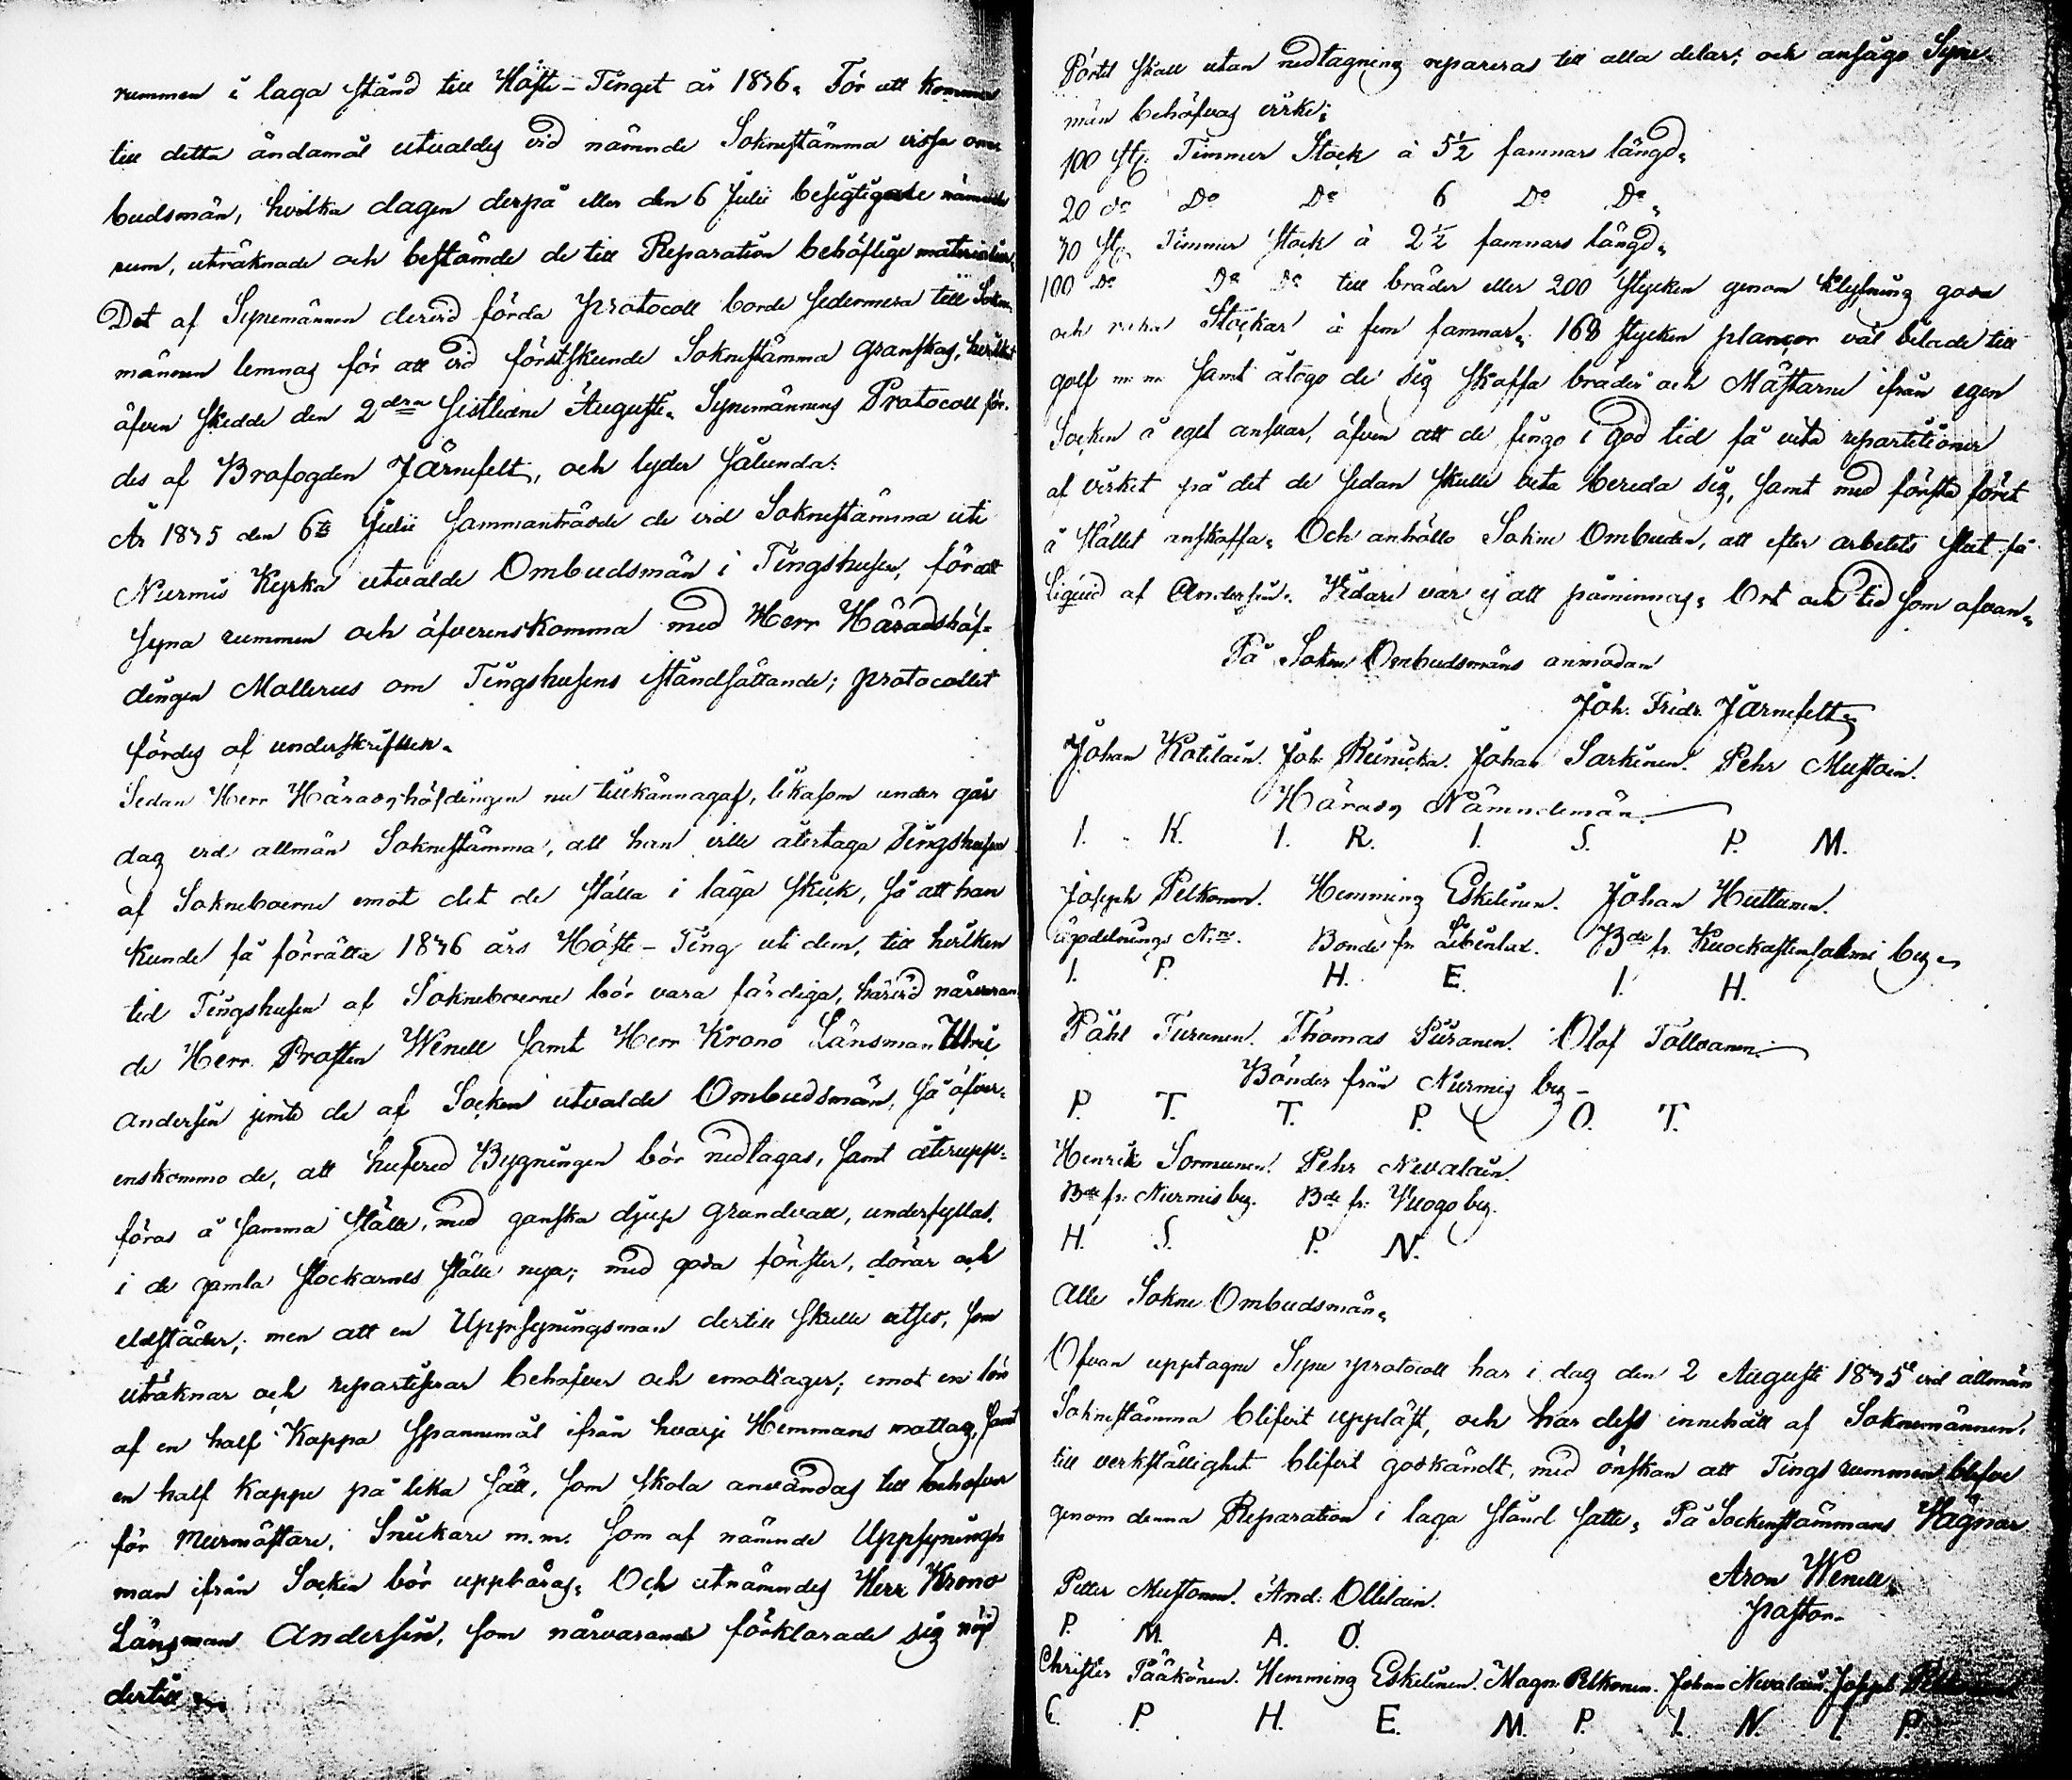 rummen i laga stånd till Höste-Tinget år 1836. För att komma
till detta ändamål utvaldes vid nämnde Soknestämma vissa om-
budsmän, hvilka dagen derpå eller den 6 Julii besigtigade nämnde
rum, uträknade och bestämde de till Reparation behöflige materialier.
Det af Synemännen dervid förda Protocoll borde sedermera till Sokne-
männen lemnas för att vid förstskeende Soknestämma granskas, hvilket
äfven skedde den 2dra sistledne Augusti. Synemännens Protocoll för-
des af Brofogden Järnefelt, och lyder sålunda:
År 1835 den 6te Julii sammanträdde de vid Soknestämma uti
Nurmis Kyrka utvalde Ombudsmän i Tingshusen, för att
syna rummen och öfverenskomma med Herr Häradshöf-
dingen Mollerus om Tingshusens iståndsättande; protocollet
fördes af underskrifven.
Sedan Herr Häradshöfdingen nu tillkännagaf, likasom under går
dag vid allmän Soknestämma, att han ville återtaga Tingshusen
af Sokneboerne emot det de ställa i laga skick, så att han
kunde få förrätta 1836 års Höste-Ting uti dem, till hvilken
tid Tingshusen af Sokneboerne bör vara färdiga, härvid närvaran-
de Herr Prosten Wenell samt Herr Krono Länsman
Andersin jemte de af Socken utvalde Ombudsmän, så öfver-
enskommo de, att hufvud Bygningen bör nedtagas, samt återupp-
föras å samma ställe, med ganska djup grundvall, underfyllas,
i de gamla stockarnes ställe nya; med goda fönster, dörar och
eldstäder; men att en Uppsyningsman dertill skulle utses, som
uträknar och repartiserar behofver och emottager; emot en lön
af en half Kappa Spannemål ifrån hvarje Hemmans mattag, samt
en half Kappe på lika sätt, som skola användas till behofver
för Murmästare, Snickare m.m. som af nämnde Uppsynings-
man ifrån Socken bör uppbäras. Och utnämndes Herr Krono
Länsman Andersin, som närvarande förklarade sig nöjd
dertill
Portel skall utan nedtagning repareras till alla delar; och ansågo Syne-
män behöfvas virke:
100 st. Timmer Stock à 5½ famnars längd.
20 do Do Do 6 Do Do
70 st. Timmer stock à 2½ famnars längd.
100 Do Do Do till bräder eller 200 stycken genom klyfning goda
och raka Stockar à fem famnar. 168 stycken plancor väl bilade till
golf m m samt åtogo de sig skaffa bräder och Mästarne ifrån egen
Socken å eget ansvar, äfven att de fingo i god tid få veta repartitioner
af virket på det de sedan skulle veta bereda sig, samt med första föret
å stället anskaffa. Och anhöllo Sokne Ombuden, att efter arbetets slut få
liqvid af Andersin. Vidare var ej att påminnas. Ort och tid som ofvan.
På Sokne Ombudsmäns anmodan
Joh. Fredr. Järnefelt
Johan Kotilain. Joh. Reinicka. Johan Sarkinen. Pehr Muston.
Härads Nämndemän.
I. K. I. R. I. S. P. M.
Joseph Pelkonen. Hemming Eskelinen. Johan Huttunen.
Ägodelnings N:n. Bonde fr. Bde fr. Kuockastensalmi by
I. P. H. E. I. H.
Påhl Turunen. Thomas Puranen. Olof Tolvanen.
Bönder från Nurmis by
P. T. T. P. O. T.
Henrik Sormunen. Pehr Nevalain.
Bde fr. Nurmis by. Bde fr. Wuogo by.
H. S. P. N.
Alle Sokne Ombudsmän.
Ofvan upptagne Syne protocoll har i dag den 2 Augusti 1835 vid allmän
Soknestämma blifvit uppläst, och har dess innehåll af Soknemännen,
till verkställighet blifvit godkändt, med önskan att Tings rummen blefve
genom denna Reparation i laga stånd satte. På Sockenstämmans Vägnar
Aron Wenell
Pastor
Petter Mustonen. And. Ollilain.
P. M. A. O.
Christer Pääkönen. Hemming Eskelinen. Magn. Pelkonen. Johan Nevalain. Joseph Pelkonen
C. P. H. E. M. P. I. N. I. P.